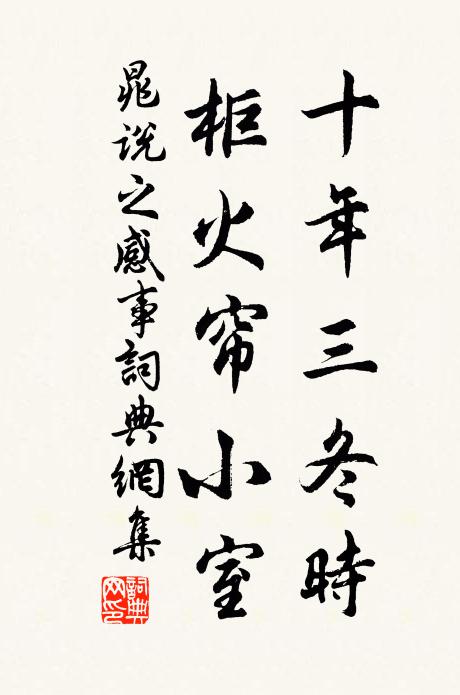 十年三冬時
柜火帘小室
晁說之感事詞典網集
詞典網印